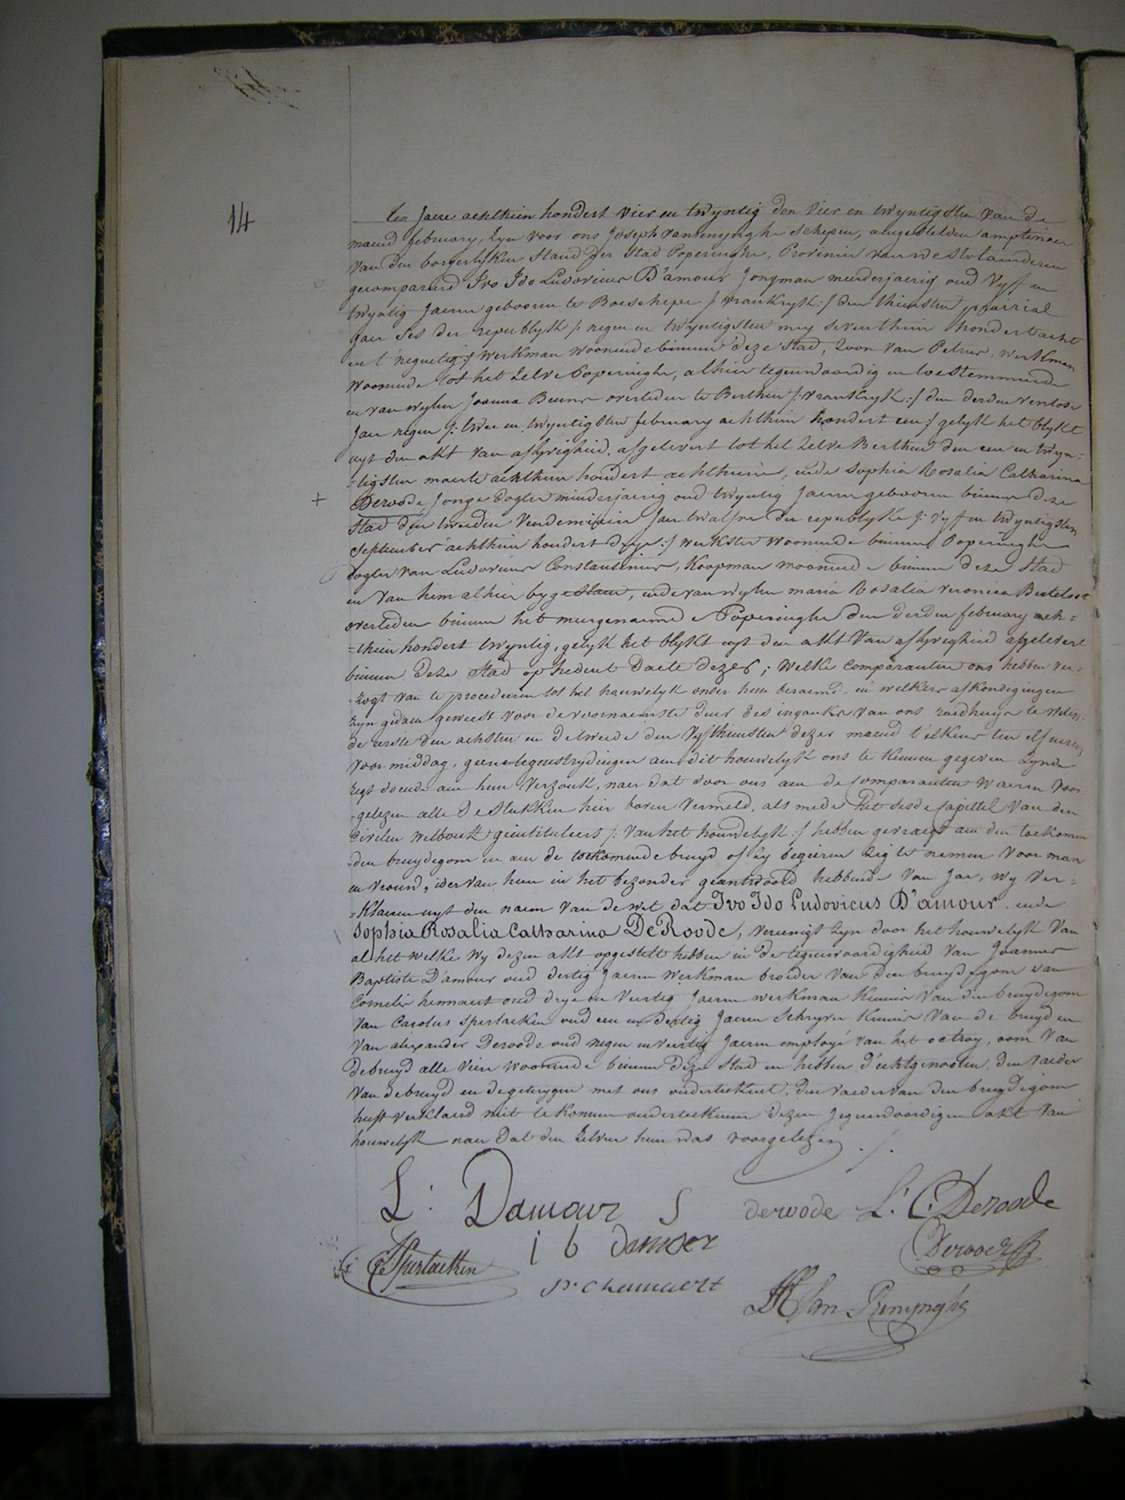 14
Ten Jaere achthien hondert vier en twyntig den vier en twyntigsten van de
maend february, Zyn voor ons Joseph vanrenynghe Schepen, aengestelden amptenaer
van den borgerlyken Stand der Stad Poperinghe, Provincie van westvlaenderen
gecompareerd Ivo Ido Ludovicus D'amour Jongman meerderjaerig oud vyf en
twyntig Jaeren gebooren te Boeschepe /: vrankryk :/ den thiensten prairial
Jaer ses der republyk /: negen en twyntigsten mey seventhien hondert acht
en t'negentig :/ werkman woonende binnen deze Stad, Zoon van Petrus werkman
woonende tot het zelve Poperinghe, alhier tegenwoordig en toestemmende
en van wylen Joanna Beun overleden te Berthen /: vrankryk :/ den derden ventose
Jaer negen /: twee en twyntigsten february achthien hondert een :/ gelyk het blykt
uyt den akt van aflyvigheid, afgelevert tot het zelve Berthen den een en twyn-
-tigsten maerte achthien hondert achthien, ende Sophia Rosalia Catharina
+ Deroode Jonge dogter minderjaerig oud twyntig Jaeren gebooren binnen deze
Stad den tweeden vendemiaire Jaer twalf der republyke /: vyf en twyntigsten
september achthien hondert drye :/ werkster woonende binnen Poperinghe
dogter van Ludovicus Constantinus, Koopman woonende binnen deze Stad
en van hem alhier bygestaen, ende van wylen maria Rosalia veronica
overleden binnen het meergenaemde Poperinghe den derden february ach=
=thien hondert twyntig, gelyk het blykt uyt den akt van aflyvigheid afgelevert
binnen deze Stad op hedent daete dezes; welke Comparanten ons hebben ver-
-zogt van te procederen tot het houwelyk onder hen beraemd, en welkers afkondigingen
zyn gedaen geweest voor de voornaemste deur des inganks van ons raedhuys te weten
de eerste den achsten en de tweede den vyfthiensten dezer maend t'elkens ten elf uren
voormiddag, geene tegenstrydingen aen dit houwelyk ons te kennen gegeven zynde
regt doende aen hun verzoek, naer dat door ons aen de Comparanten waeren voor
-gelezen alle de Stukken hier boven vermeld, als mede het sesde Capittel van den
Civilen wetboek geintituleert /: van het houwelyk :/ hebben gevraegt aen den toekomen
-den bruydegom en aen de toekomende bruyd of zy begeeren zig te nemen voor man
en vrouw, ider van hun in het bezonder geantwoord hebbende van Jae, wy ver=
=klaeren uyt den naem van de wet dat Ivo Ido Ludovicus D'amour ende
Sophia Rosalia Catharina DeRoode, vereenigt zyn door het houwelyk van
al het welke wy dezen akt opgestelt hebben in de tegenwoordigheid van Joannes
Baptiste D'amour oud dertig Jaeren werkman broeder van den bruydegom van
Cornelis oud drye en veertig Jaeren werkman Kennis van den bruydegom
van Carolus Spertaeken oud een en dertig Jaeren Schryver Kennis van de bruyd en
van alexander Deroode oud negen en veertig Jaeren employé van het octroy, oom van
de bruyd alle viere woonende binnen deze Stad en hebben d'echtgenooten, den vaeder
van de bruyd en de getuygen met ons onderteekent, den vaeder van den bruydegom
heeft verklaerd niet te konnen onderteekenen dezen Jegenwoordigen akt van
houwelyk naer dat den zelven hun was voorgelezen ./.
L: Damour S deroode L: C: Deroode
j b damoer
C Spertaeken Deroode
J. Van Renynghe